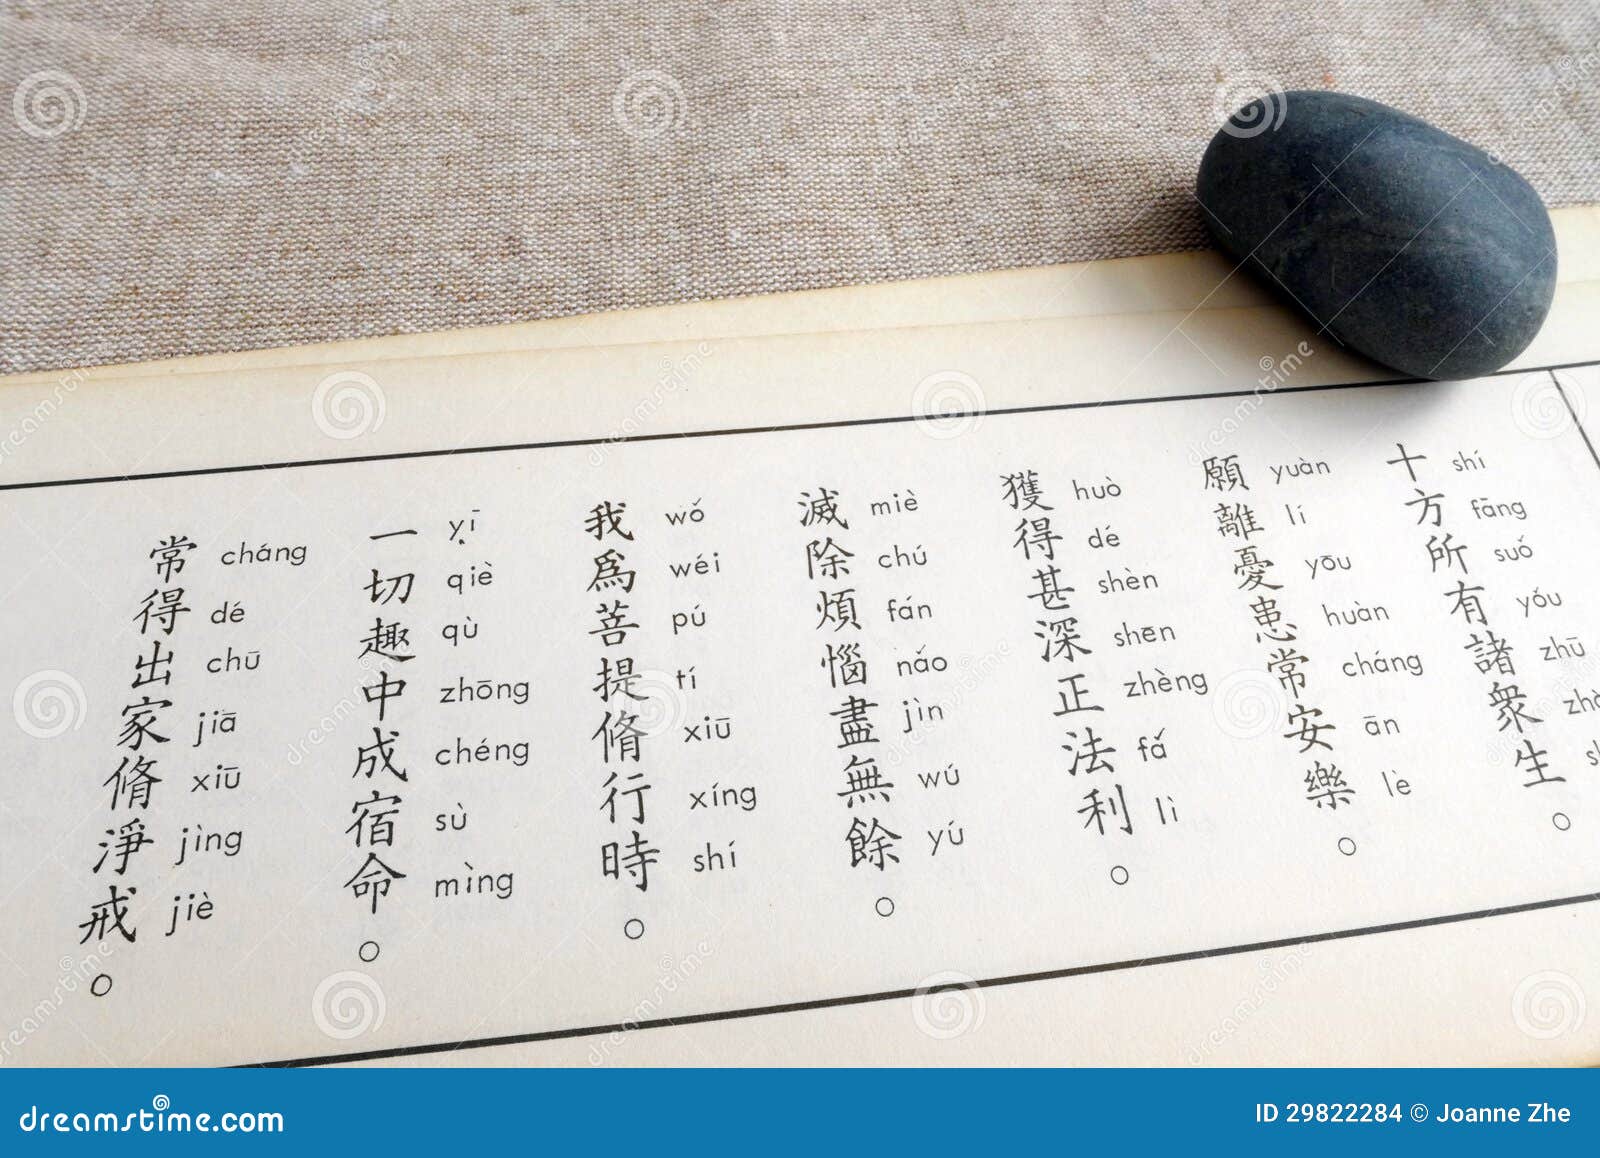 十方所有諸衆生。
shí fāng suǒ yǒu zhū
願離憂患常安樂。
yuàn lí yōu huàn cháng ān lè
獲得甚深正法利。
huò dé shèn shēn zhèng fǎ lì
滅除煩惱盡無餘。
miè chú fán nǎo jìn wú yú
我爲菩提脩行時。
wǒ wéi pú tí xiū xíng shí
一切趣中成宿命。
yī qiè qù zhōng chéng sù mìng
常得出家脩淨戒。
cháng dé chū jiā xiū jìng jiè
dreamstime.com
ID 29822284 © Joanne Zhe